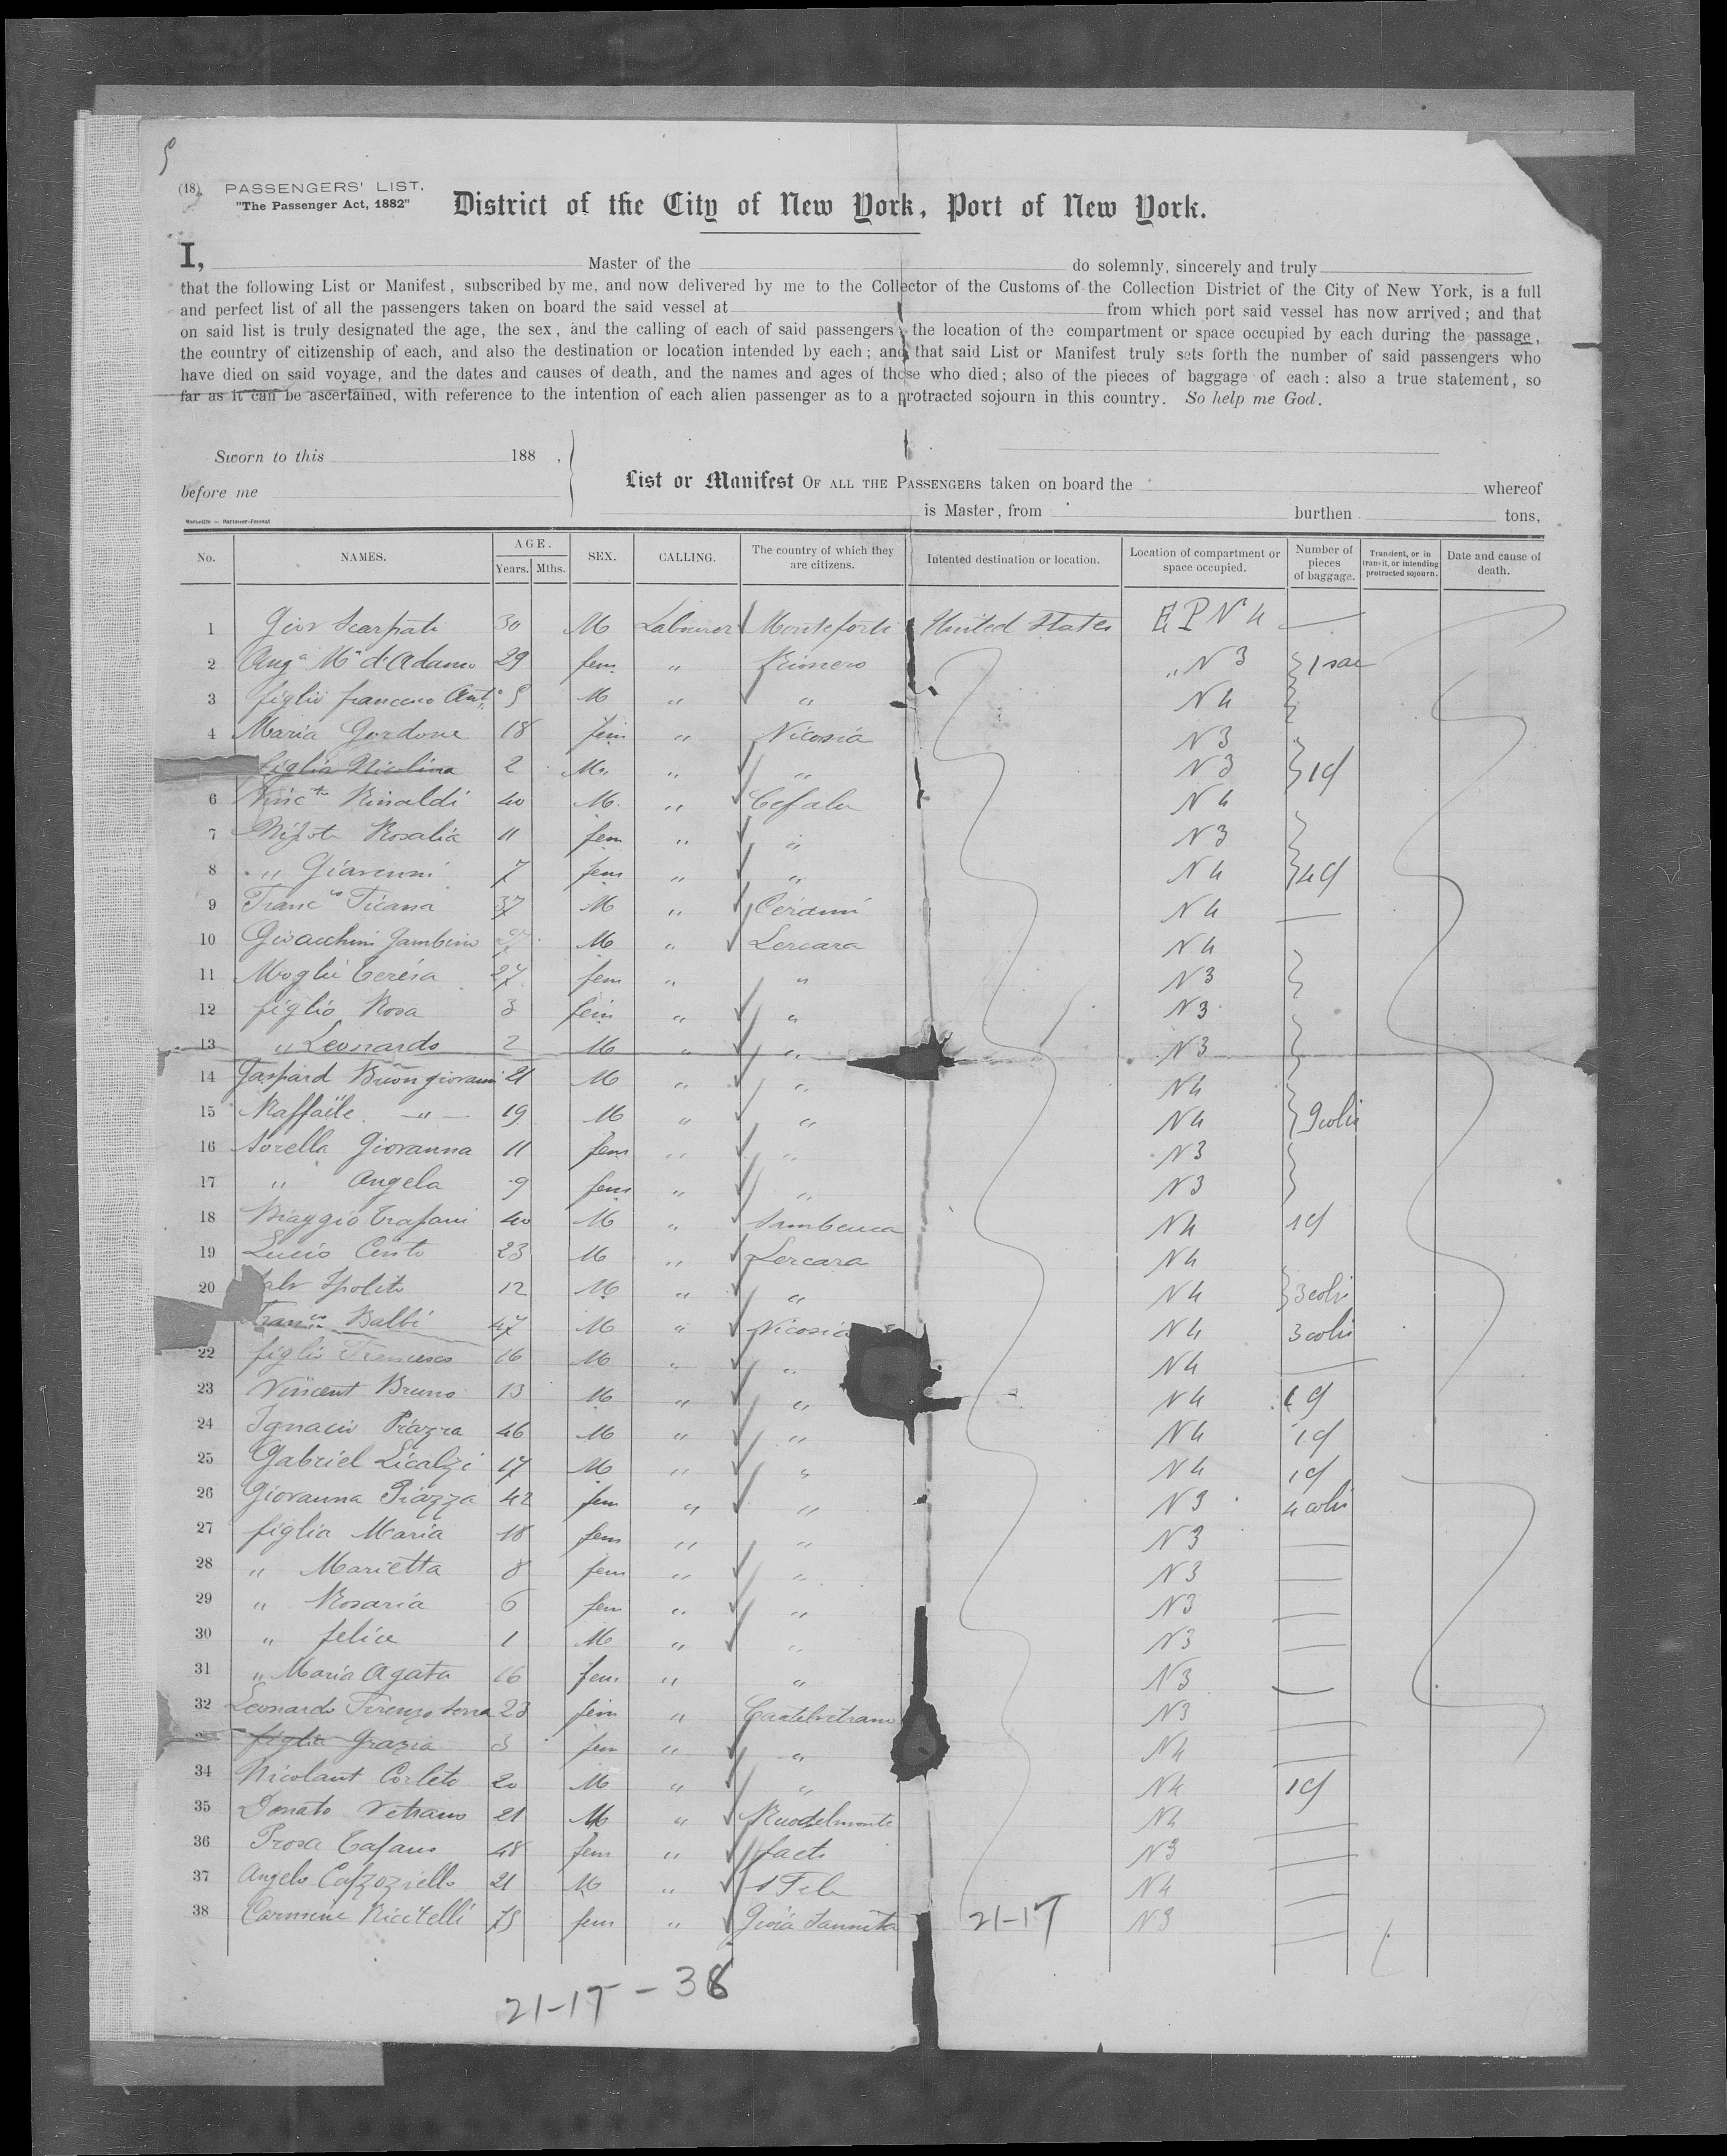 (18) PASSENGERS' LIST.
"The Passenger Act, 1882"
District of the City of New York, Port of New York.
I, Master of the do solemnly, sincerely and truly
that the following List or Manifest, subscribed by me, and now delivered by me to the Collector of the Customs of the Collection District of the City of New York, is a full
and perfect list of all the passengers taken on board the said vessel at from which port said vessel has now arrived; and that
on said list is truly designated the age, the sex, and the calling of each of said passengers, the location of the compartment or space occupied by each during the passage,
the country of citizenship of each, and also the destination or location intended by each; and that said List or Manifest truly sets forth the number of said passengers who
have died on said voyage, and the dates and causes of death, and the names and ages of those who died; also of the pieces of baggage of each: also a true statement, so
far as it can be ascertained, with reference to the intention of each alien passenger as to a protracted sojourn in this country. So help me God.
Sworn to this 188 ,
before me
List or Manifest OF ALL THE PASSENGERS taken on board the whereof
is Master, from burthen tons,
No. NAMES. AGE. Years. Mths. SEX. CALLING. The country of which they are citizens. Intented destination or location. Location of compartment or space occupied. Number of pieces of baggage. Transient, or in transit, or intending protracted sojourn. Date and cause of death.
1 Giov Scarpati 30 M Labourer Monteforte United States E P N 4 —
2 Ang.a M.a d'Adamo 29 fem " " N 3 1 sac
3 figlio francesco Ant.o 5 M " " N 4
4 Maria Gordone 18 fem " Nicosia N 3
figlia Nicolina 2 M " " N 3 1 cf
6 Rinaldi 40 M " Cefalu N 4
7 Nipote Rosalia 11 fem " " N 3
8 " Giavanni 7 fem " " N 4 4 cf
9 Franc.co Ticana 37 M " Cerami N 4 —
10 Gioacchini Gambino M " Lercara N 4
11 Moglie Teresa 27 fem " " N 3
12 figlio Rosa 3 fem " " N 3
13 " Leonardo 2 M " " N 3
14 Gaspard Buongiovanni 21 M " " N 4
15 Raffaile — " — 19 M " " N 4 9 colis
16 Sorella Giovanna 11 fem " " N 3
17 " Angela 9 fem " " N 3
18 Biaggio Trapani 40 M " Sambuca N 4 1 cf
19 Lucio Cinto 23 M " Lercara N 4
20 Ipolito 12 M " " N 4 3 colis
Franc.co Balbi 47 M " Nicosia N 4 3 colis
22 figlio Francesco 16 M " " N 4 —
23 Vincent Bruno 13 M " " N 4 1 cf
24 Ignacio Piazza 46 M " " N 4 1 cf
25 Gabriel Licalzi 17 M " " N 4 1 cf
26 Giovanna Piazza 42 fem " " N 3 4 colis
27 figlia Maria 18 fem " " N 3 —
28 " Marietta 8 fem " " N 3 —
29 " Rosaria 6 fem " " N 3 —
30 " felice 1 M " " N 3 —
31 " Maria Agata 16 fem " " N 3 —
32 Leonardo 23 fem " Castelvetrano N 3 —
figlia Grazia 3 fem " " N 4 —
34 Nicolant Corleto 20 M " " N 4 1 cf
35 Donato Vetrano 21 M " N 4 —
36 Rosa Tafano 48 fem " N 3 —
37 Angelo 21 M " S Fele N 4 —
38 Carmine Ricitelli 75 fem " Gioia Sannita 21-17 N 3 —
21-17 - 38